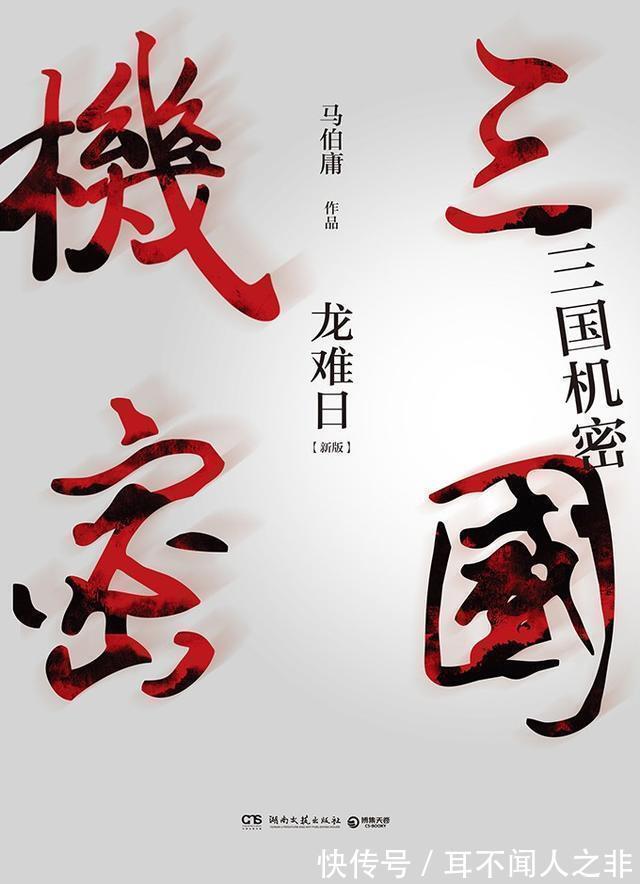 三國
機密
三国机密
马伯庸
作品
龙难日
【新版】
湖南文艺出版社
博集天卷
CS-BOOKY
快传号/耳不闻人之非